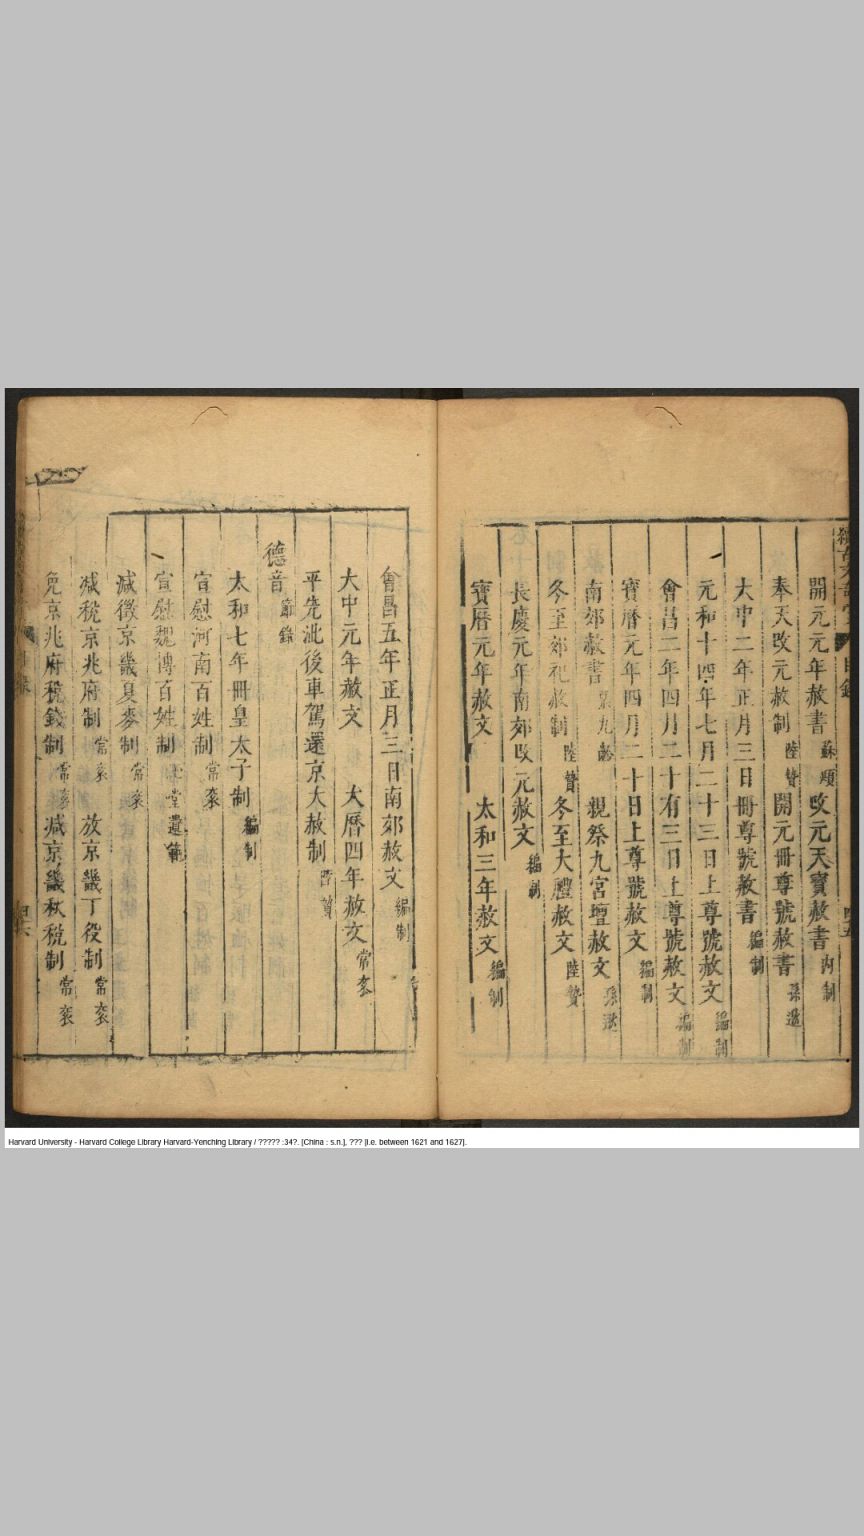 開元元年赦書 蘇頲 改元天寶赦書 內制
奉天改元赦制 陸贄 開元冊尊號赦書 孫逖
大中二年正月三日冊尊號赦書 編制
元和十四年七月二十三日上尊號赦文 編制
會昌二年四月二十有三日上尊號赦文 編制
寶曆元年四月二十日上尊號赦文 編制
南郊赦書 九齡 親祭九宮壇赦文 孫逖
冬至郊祀赦制 陸贄 冬至大禮赦文 陸贄
長慶元年南郊改元赦文 編制
寶曆元年赦文 太和三年赦文 編制
會昌五年正月三日南郊赦文 編制
大中元年赦文 大曆四年赦文 常袞
平先泚後車駕還京大赦制 陸贄
德音 節錄
太和七年冊皇太子制 編制
宣慰河南百姓制 常袞
宣慰魏博百姓制 玉堂遺範
減徵京畿夏麥制 常袞
減稅京兆府制 常袞 放京畿丁役制 常袞
免京兆府稅錢制 常袞 減京畿秋稅制 常袞
Harvard University - Harvard College Library Harvard-Yenching Library / ????? :34?. [China : s.n.], ??? [i.e. between 1621 and 1627].